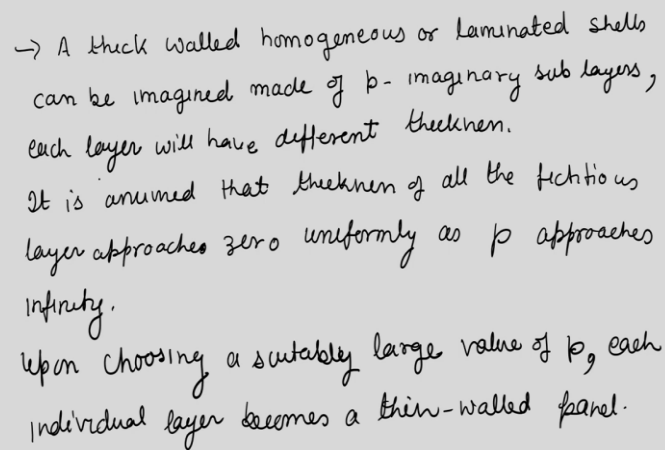 → A thick walled homogeneous or laminated shells
can be imagined made of p- imaginary sub layers,
each layer will have different thickness.
It is assumed that thickness of all the fictitious
layer approaches zero uniformly as p approaches
infinity.
Upon choosing a suitably large value of p, each
individual layer becomes a thin-walled panel.